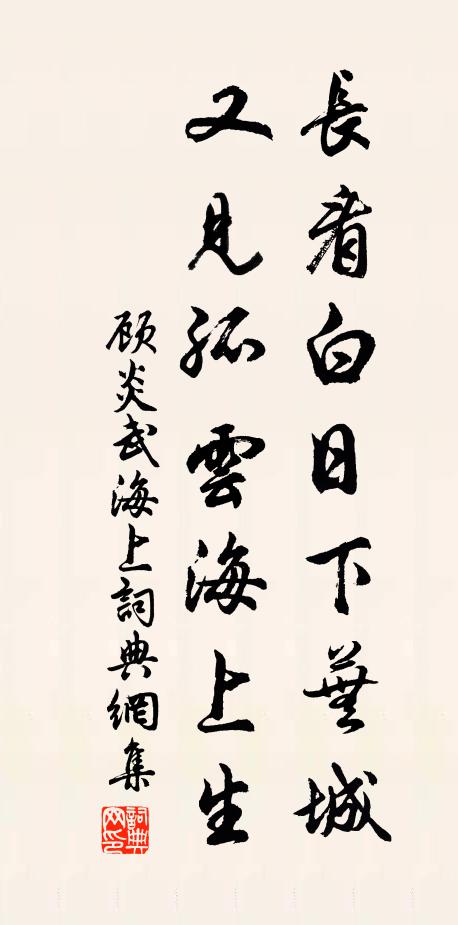 長看白日下蕪城
又見孤雲海上生
顾炎武海上詞典網集
詞典网印